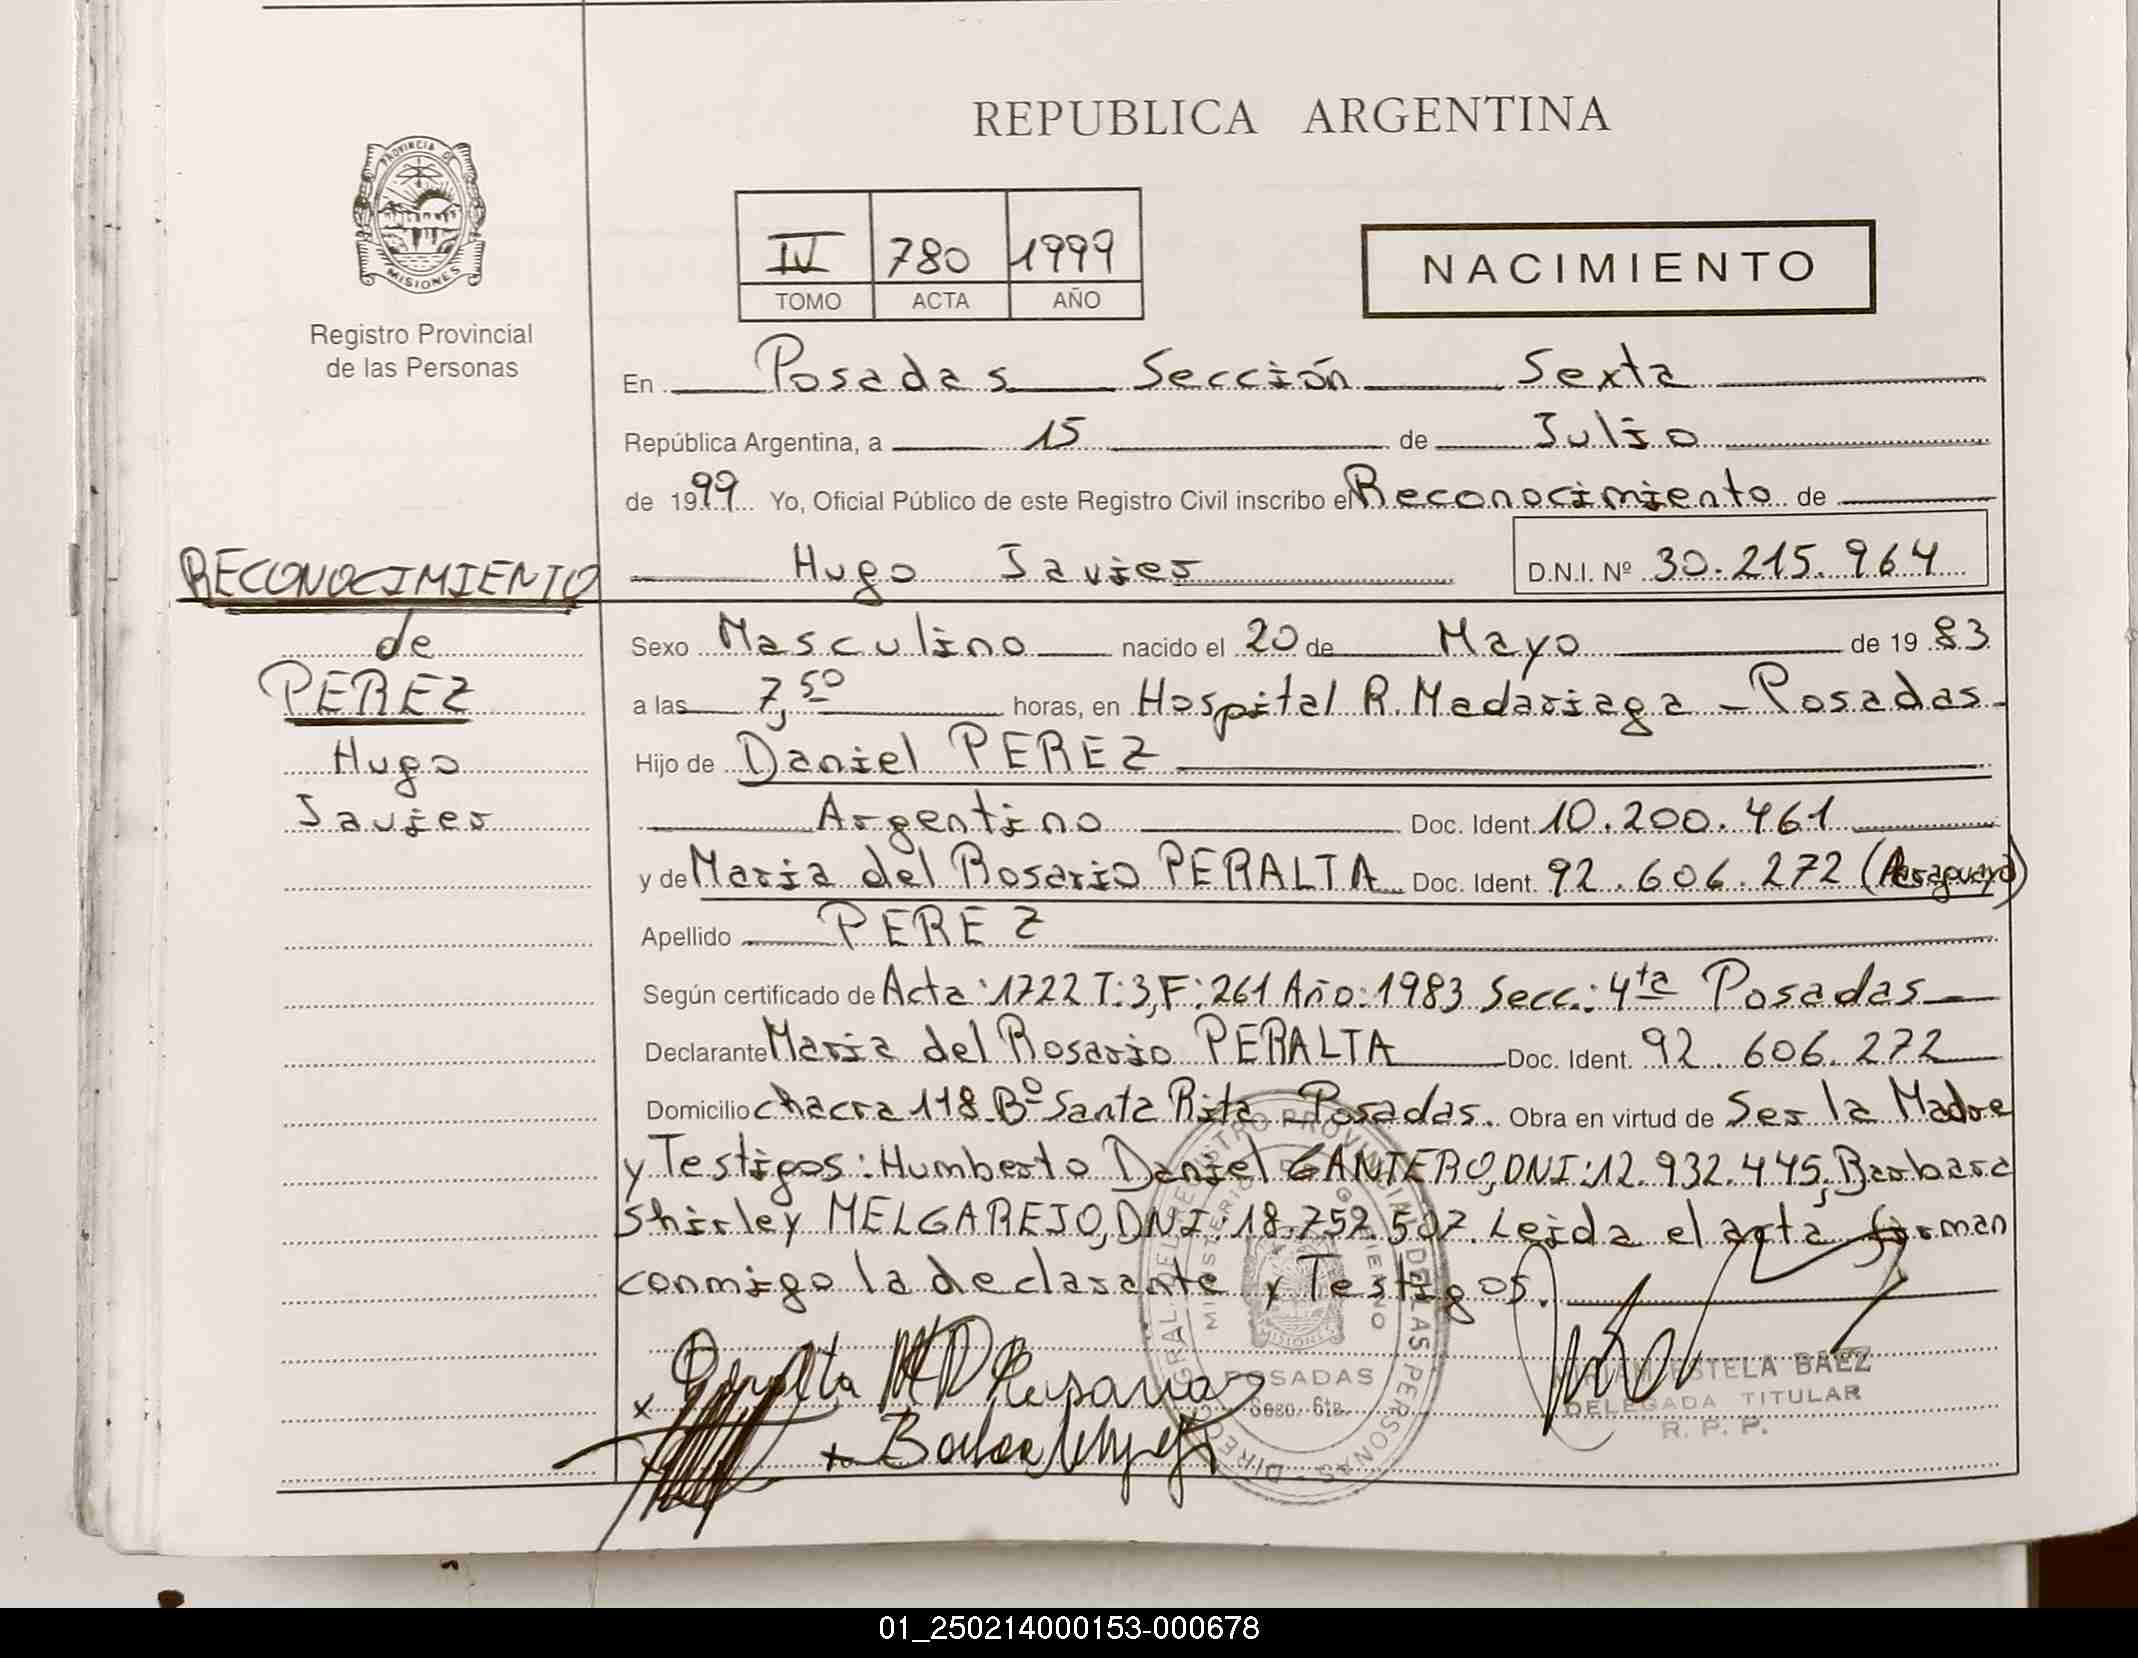 REPUBLICA ARGENTINA
PROVINCIA DE
MISIONES
Registro Provincial
de las Personas
IV 780 1999
TOMO ACTA AÑO
NACIMIENTO
En Posadas Sección Sexta
República Argentina, a 15 de Julio
de 1999 Yo, Oficial Público de este Registro Civil inscribo el Reconocimiento de
Hugo Javier D.N.I. Nº 30.215.964
RECONOCIMIENTO
de
PEREZ
Hugo
Javier
Sexo Masculino nacido el 20 de Mayo de 1983
a las 7,50 horas, en Hospital R. Madariaga - Posadas-
Hijo de Daniel PEREZ
Argentino Doc. Ident. 10.200.461
y de Maria del Rosario PERALTA Doc. Ident. 92.606.272 (Paraguaya)
Apellido PEREZ
Según certificado de Acta:1722 T:3, F:261 Año:1983 Secc.: 4ta Posadas
Declarante Maria del Rosario PERALTA Doc. Ident. 92.606.272
Domicilio chacra 118 Bº Santa Rita Posadas. Obra en virtud de Ser la Madre
y Testigos: Humberto Daniel GANTERO, DNI:12.932.445, Barbara
Shirley MELGAREJO, DNI:18.752.507. Leida el acta firman
conmigo la declarante y Testigos.
x Peralta M D Rosario
DIRECCION GRAL. DEL REGISTRO PROVINCIAL DE LAS PERSONAS
MINISTERIO DE GOBIERNO
MISIONES
POSADAS
Secc. 6ta.
MIRIAM ESTELA BAEZ
DELEGADA TITULAR
R. P. P.
01_250214000153-000678